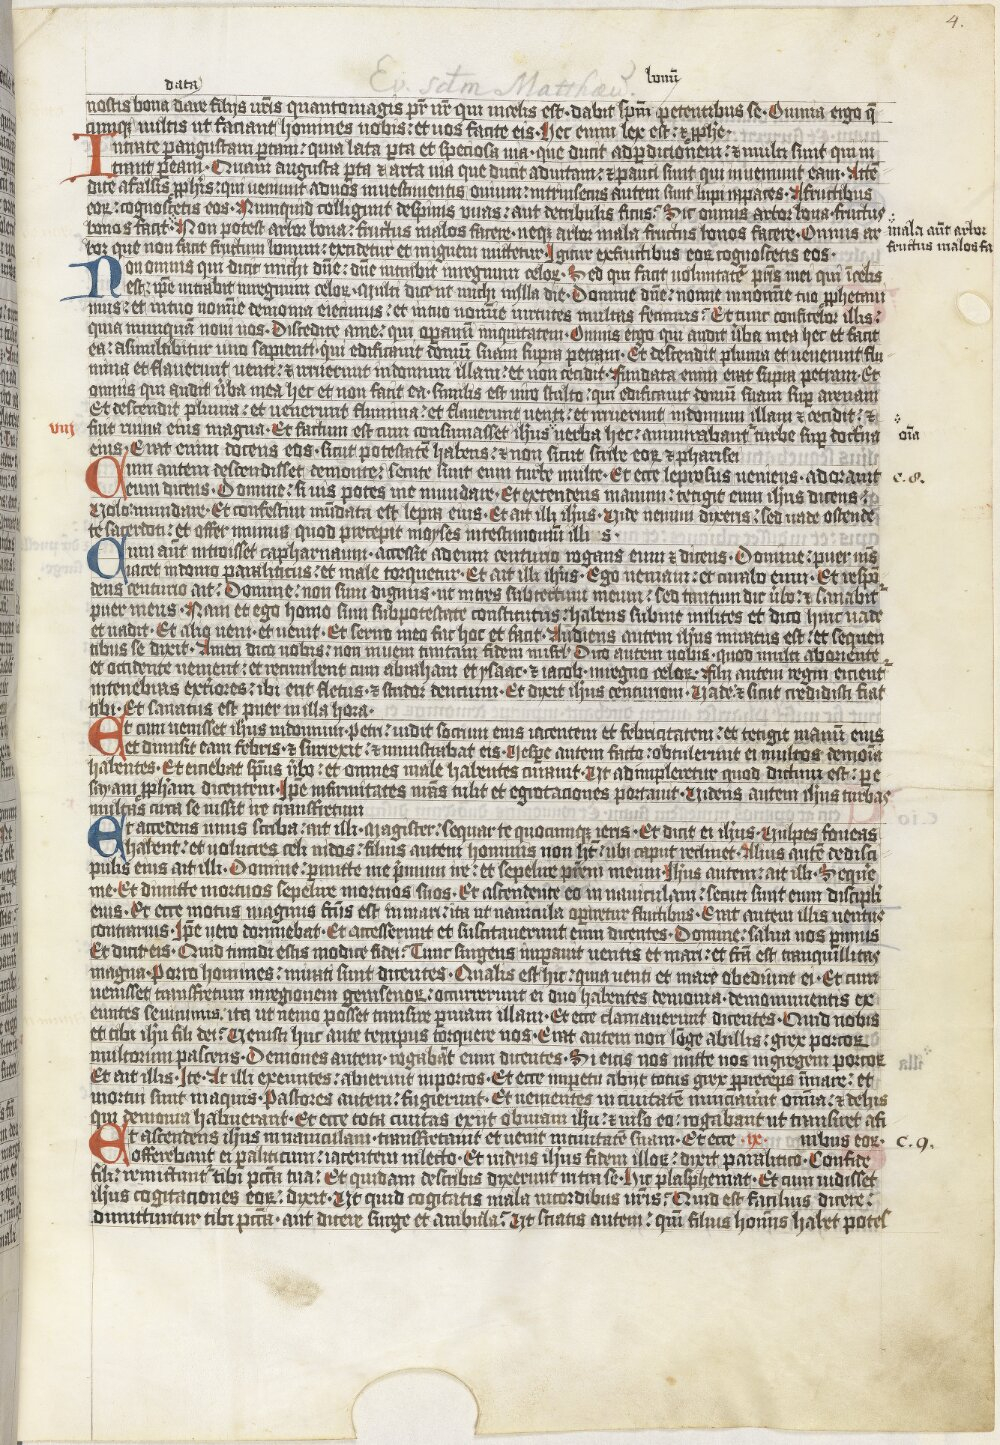 4.
data
Ev. sctm Matthæu.
bonū
nostis bona dare filijs vr̄is quantomagis pr̄ vr̄ qui incelis est · dabit sp̄m petentibus se · Omnia ergo q̄
cumq vultis ut faciant homines vobis : et vos facite eis · Hec enim lex est : ⁊ ꝓph̄e ·
Intrate ꝑangustam portam : quia lata porta et speciosa via · que ducit adꝑditionem : ⁊ multi sunt qui in
trant ꝑeam · Quam angusta porta ⁊ arta via que ducit aduitam : ⁊ pauci sunt qui inueniunt eam · Atte
dite afallis ꝓph̄is : qui veniunt aduos inuestimentis ouium : intrinsecus autem sunt lupi rapaces · Afructibus
eoꝝ : cognoscetis eos · Numquid colligunt despinis vuas : aut detribulis ficus : Sic omnis arbor bona · fructus
bonos facit · Non potest arbor bona : fructus malos facere · neqꝫ arbor mala fructus bonos facere · Omnis ar
mala aūt arbor
fructus malos fa
bor que non facit fructum bonum : excidetur et inignem mittetur · Igitur exfructibus eoꝝ cognoscetis eos ·
Non omnis qui dicit michi dn̄e : dn̄e intrabit inregnum celoꝝ · Sed qui facit voluntatē pr̄is mei qui ī celis
est : ip̄e intrabit inregnum celoꝝ · Multi dicent michi inilla die · Domine dn̄e : nonne innomīe tuo ꝓphetaui
mus : et intuo nomīe demonia eiecimus : et intuo nomīe virtutes multas fecimus : Et tunc confitebor illis :
quia numquā noui vos · Discedite ame : qui oꝑamini iniquitatem · Omnis ergo qui audit v̄ba mea hec et facit
ea : asimilabitur viro sapienti · qui edificauit domū suam supra petram · Et descendit pluuia et venerunt flu
mina et flauerunt venti : ⁊ irruerunt indomum illam : et non cecidit · Fundata enim erat supra petram · Et
omnis qui audit v̄ba mea hec et non facit ea · similis est viro stulto : qui edificauit domū suam suꝑ arenam
Et descendit pluuia : et venerunt flumina : et flauerunt venti : et irruerunt indomum illam ⁊ cecidit : ⁊
viij
fuit ruina eius magna · Et factum est cum consumasset ihūs verba hec : ammirabant turbe suꝑ doctrina
oīa
eius · Erat enim docens eos · sicut potestatē habens : ⁊ non sicut scribe eoꝝ ⁊ pharisei
Cum autem descendisset demonte : secute sunt eum turbe multe · Et ecce leprosus veniens · adorauit
c. 8.
eum dicens · Domine : si vis potes me mundare · Et extendens manum : tetigit eum ihūs dicens :
Volo · mundare · Et confestim mūdata est lepra eius · Et ait illi ihūs · Vide nemini dixeris : sed vade ostende
te sacerdoti : et offer munus quod precepit moyses intestimoniū illis ·
Cum aūt introisset capharnaum · accessit adeum centurio rogans eum ⁊ dicens · Domine : puer m̄s
iacet indomo paraliticus : et male torquetur · Et ait illi ihūs · Ego veniam : et curabo eum · Et respō
dens centurio ait : Domine : non sum dignus · ut intres subtectum meum : sed tantum dic v̄bo : ⁊ sanabit
puer meus · Nam et ego homo sum subpotestate constitutus : habens subme milites et dico huic vade
et vadit · Et alio veni · et venit · Et seruo meo fac hoc et facit · Audiens autem ihūs miratus est : et sequen
tibus se dixit · Amen dico vobis : non inueni tantam fidem inisrl · Dico autem vobis · quod multi aboriente
et occidente venient : et recumbent cum abraham et ysaac · ⁊ iacob · inregno celoꝝ · Filij autem regni eicient
intenebras ext̄iores : ibi erit fletus · ⁊ stridor dentium · Et dixit ihūs centurioni · Vade · ⁊ sicut credidisti fiat
tibi · Et sanatus est puer in illa hora ·
Et cum venisset ihūs indomum · Petri : vidit socrum eius iacentem et febricitatem : et tetigit manū eius
et dimisit eam febris · ⁊ surrexit : ⁊ ministrabat eis · Vespe autem facto : obtulerunt ei multos demōia
habentes · Et eiciebat sp̄us v̄bo : et omnes male habentes curauit · Ut adimpleretur quod dictum est : ꝑ e
sayam ꝓph̄am dicentem · Ip̄e infirmitates nr̄as tulit et egrotaciones portauit · Videns autem ihūs turbas
multas circa se iussit ire transfretum
Et accedens unus scriba : ait illi · Magister : sequar te quocumqꝫ ieris · Et dicit ei ihūs · Vulpes foueas
habent : et volucres celi nidos : filius autem hominis non h̄t : ubi caput reclinet · Alius autē dedisci
pulis eius ait illi · Domine : ꝑmitte me p̄mum ire : et sepelire pr̄em meum · Ihūs autem : ait illi · Sequere
me · Et dimitte mortuos sepelire mortuos suos · Et ascendente eo in nauiculam : secuti sunt eum discipli
eius · Et ecce motus magnus fc̄us est inmari : ita ut nauicula opiretur fluctibus · Erat autem illis ventus
contrarius · Ip̄e vero dormiebat · Et accesserunt et suscitauerunt eum dicentes · Domine : salua nos ꝑimus
Et dicit eis · Quid timidi estis modice fidei : Tunc surgens imꝑauit ventis et mari : et fc̄a est tranquillitas
magna · Porro homines : mirati sunt dicentes · Qualis est hic : quia venti et mare obediunt ei · Et cum
venisset transfretum inregionem gerasenoꝝ : occurrerunt ei duo habentes demonia · demonumentis ex
euntes seui nimis · ita ut nemo posset transire ꝑuiam illam · Et ecce clamauerunt dicentes · Quid nobis
et tibi ihū fili dei : Venisti huc ante tempus torquere nos · Erat autem non lōge abillis : grex porcoꝝ
multorum pascens · Demones autem · rogabāt eum dicentes · Si eicis nos mitte nos ingregem porcoꝝ
Et ait illis · Ite · At illi exeuntes : abierunt inporcos · Et ecce impetu abijt totus grex ꝑpreceps īmare : et
mortui sunt inaquis · Pastores autem : fugierunt · Et venientes inciuitatē nunciauint omīa : ⁊ dehijs
qui demonia habuerant · Et ecce tota ciuitas exijt obuiam ihū : ⁊ viso eo : rogabant ut transiret afi
Et ascendens ihūs innauiculam · transfretauit et venit inciuitatē suam · Et ecce · ix · nibus eoꝝ ·
c. 9.
offerebant ei paraliticum : iacentem inlecto · Et videns ihūs fidem illoꝝ : dixit paralitico · Confide
fili : remittuntr̄ tibi pctā tua : Et quidam describis dixerunt intra se · Hic plasphemat · Et cum vidisset
ihūs cogitaciones eoꝝ : dixit · Ut quid cogitatis mala incordibus vr̄is : Quid est facilius dicere :
dimittuntur tibi pctā · aut dicere surge et ambula : Ut sciatis autem : qm̄ filius homīs habet potes